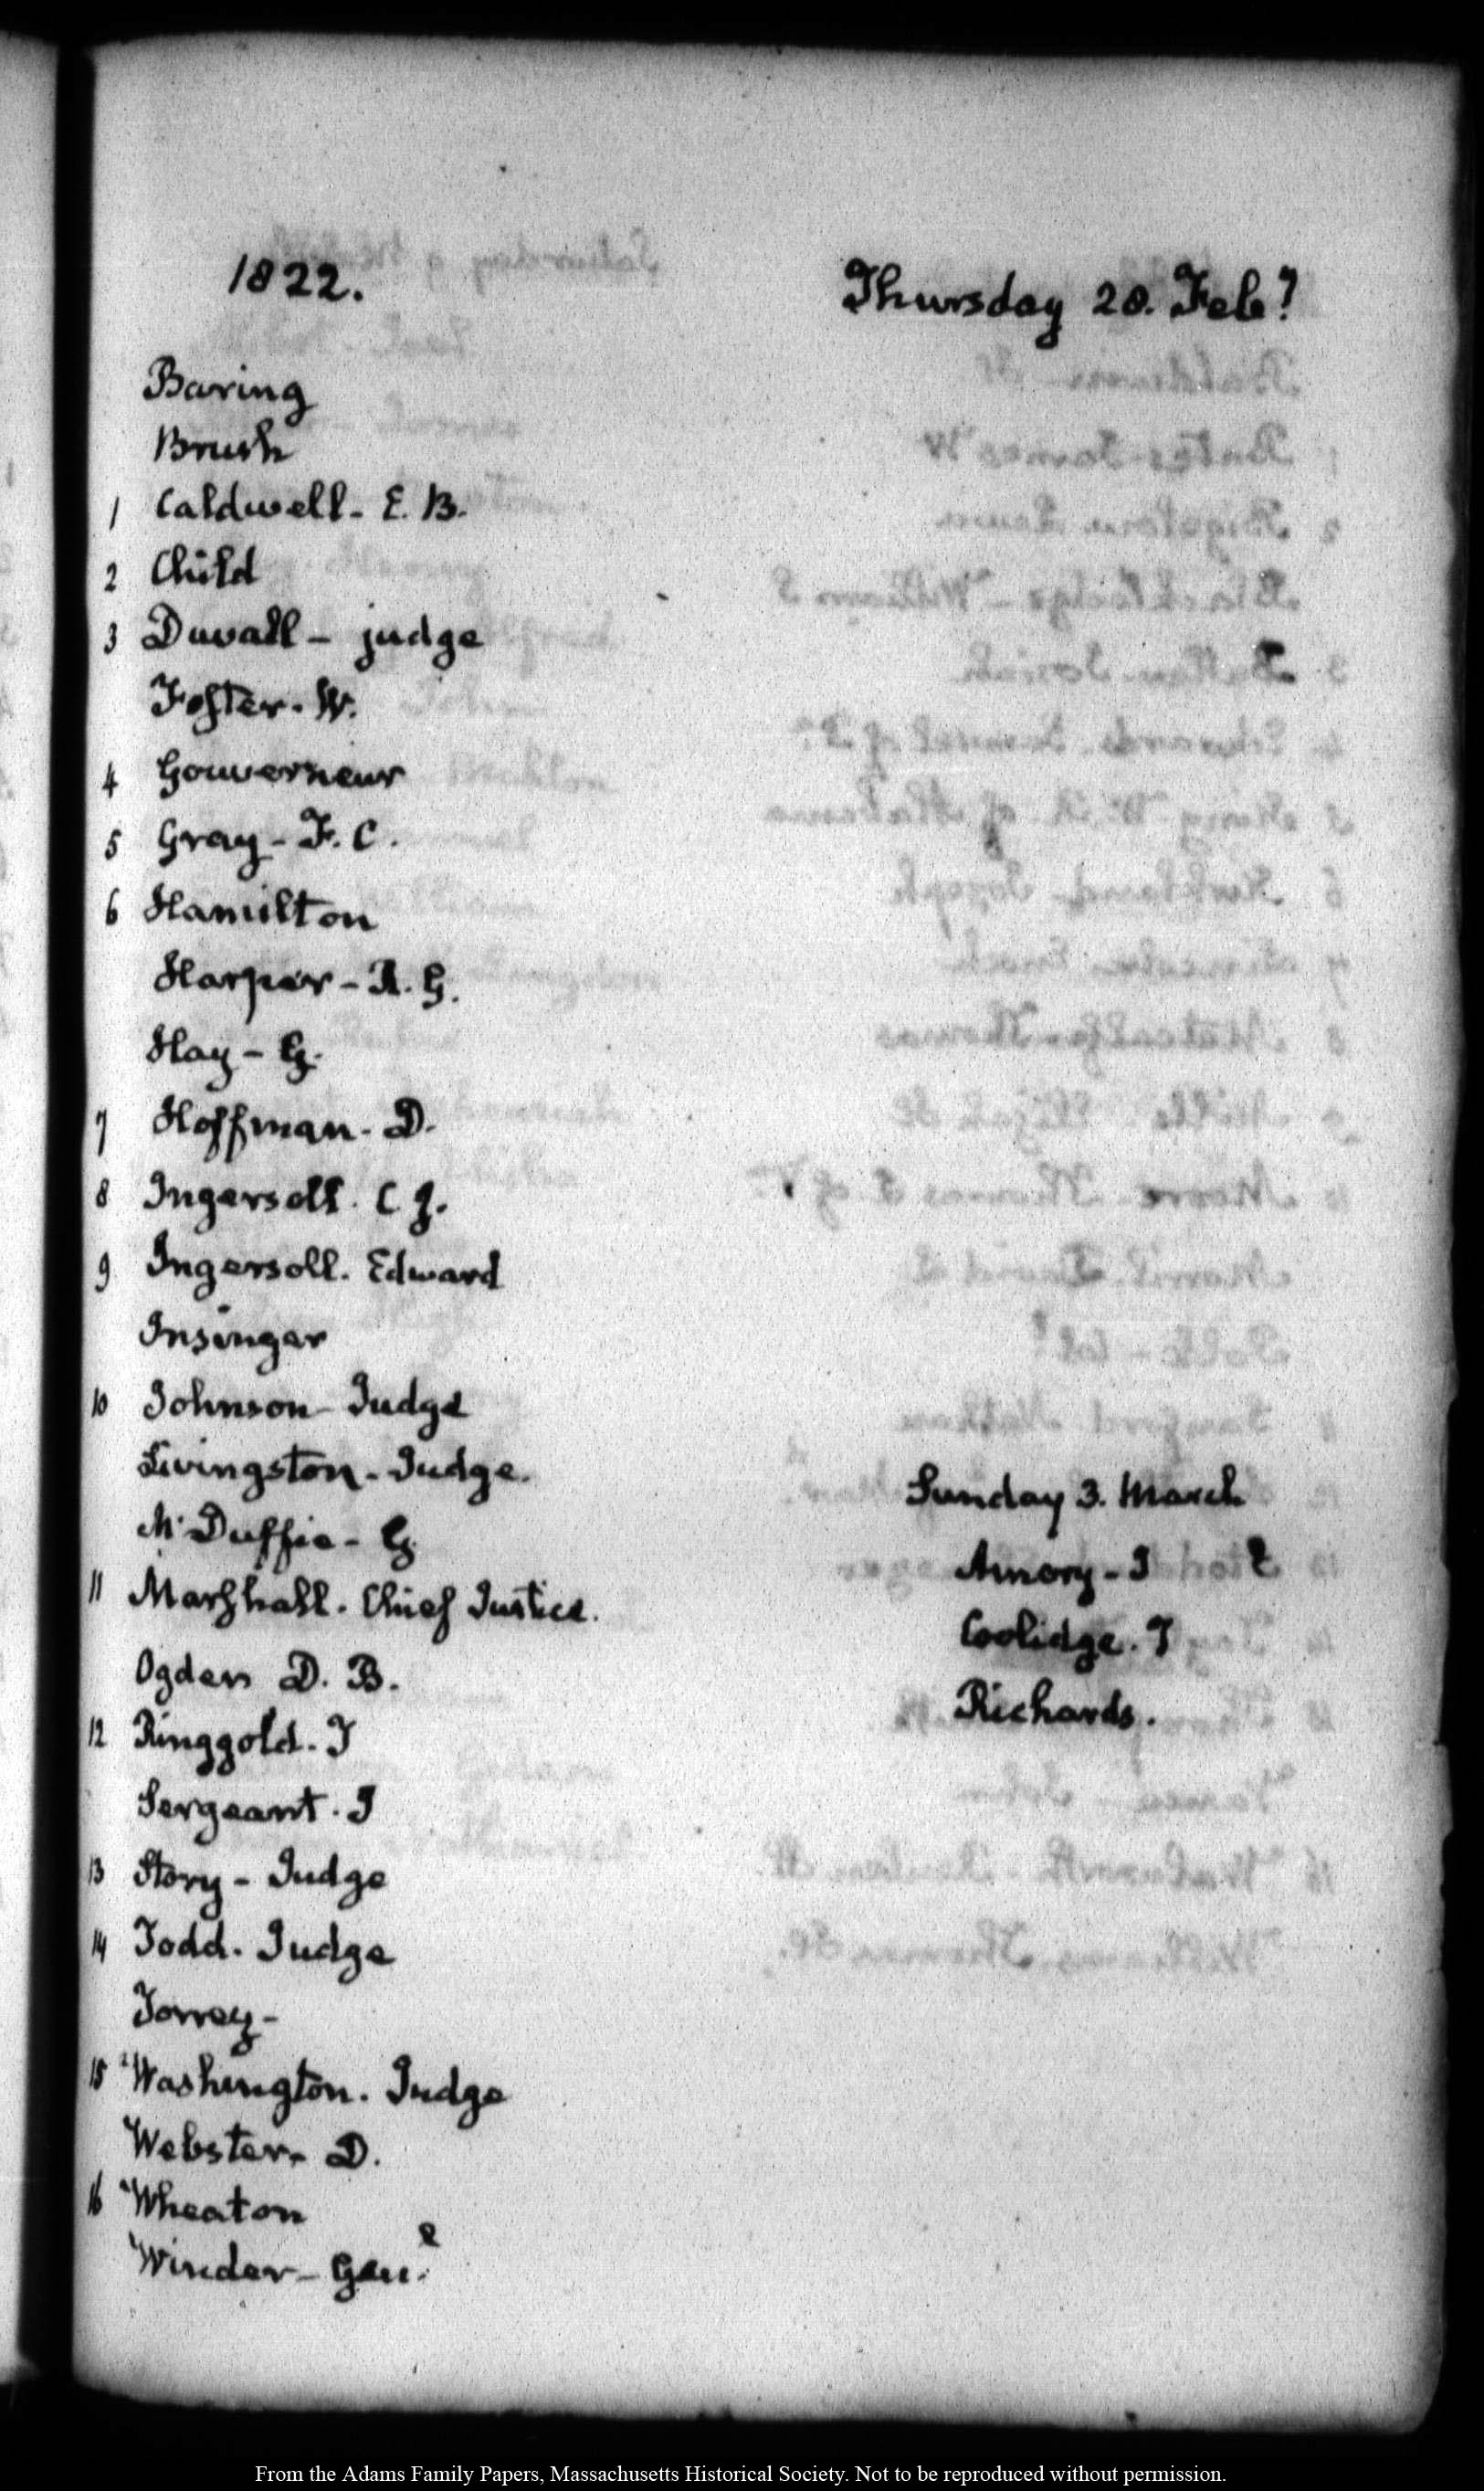 1822.
Thursday 28. Feb.y
Baring
Brush
1 Caldwell - E. B.
2 Child
3 Duvall - judge
Foster - W.
4 Gouverneur
5 Gray - F. C.
6 Hamilton
Harper - R. G.
Hay - G.
7 Hoffman - D.
8 Ingersoll. C J.
9 Ingersoll. Edward
Insinger
10 Johnson - Judge
Livingston - Judge.
McDuffie - G
11 Marshall. Chief Justice.
Ogden D. B.
12 Ringgold. T
Sergeant. J
13 Story - Judge
14 Todd. Judge
Torrey -
15 Washington. Judge
Webster - D.
16 Wheaton
Winder - Gen.l
Sunday 3. March
Amory - J
Coolidge. J
Richards.
From the Adams Family Papers, Massachusetts Historical Society. Not to be reproduced without permission.